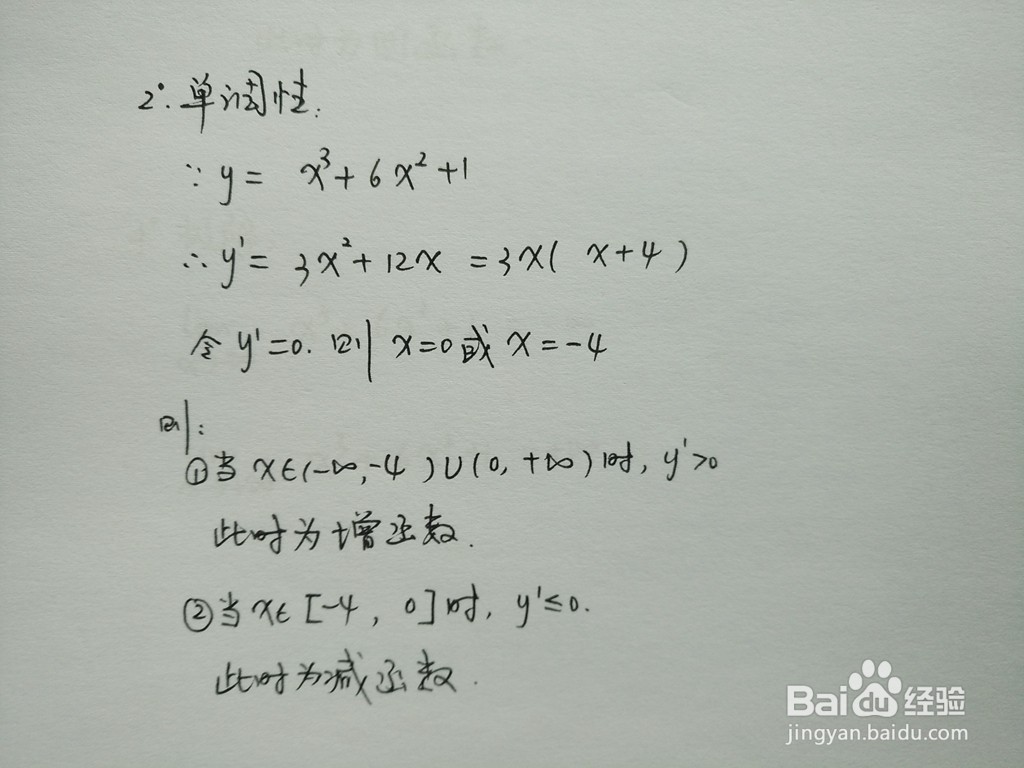 2°. 单调性.
∵ y = x³ + 6x² + 1
∴ y' = 3x² + 12x = 3x( x+4 )
令 y'=0. 则 x=0 或 x=-4
则:
①当 x∈(-∞,-4)∪(0,+∞)时, y'>0
此时为增函数.
②当 x∈[-4, 0]时, y'≤0.
此时为减函数.
Baidu经验
jingyan.baidu.com